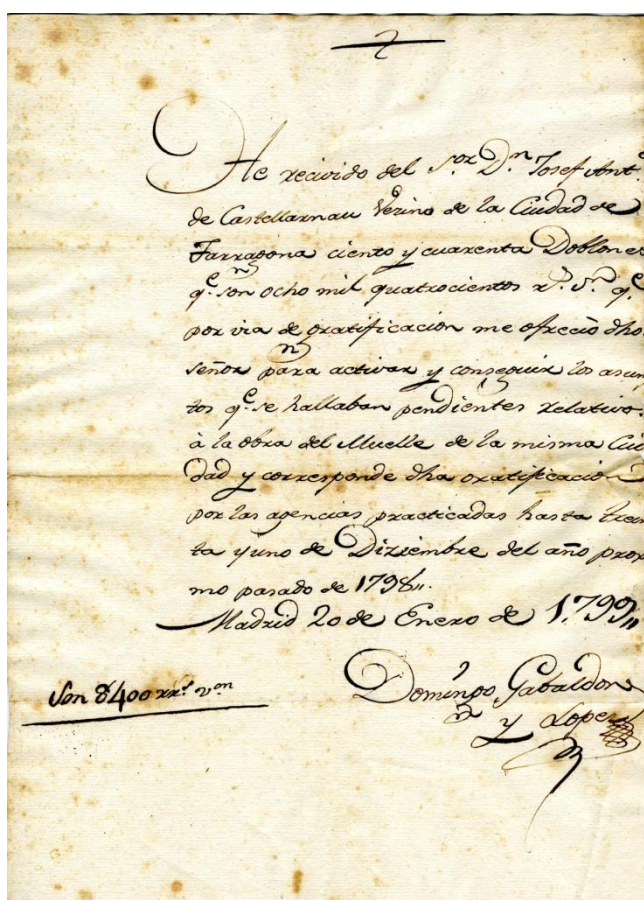 He recivido del S.or D.n Josef Ant.
de Castellarnau Vezino de la Ciudad de
Tarragona ciento y cuarenta Doblones
q.e son ocho mil quatrocientos r.s v.n q.e
por via de gratificacion me ofreció dho
señor para activar y conseguir los asun
tos q.e se hallaban pendientes relativo
à la obra del Muelle de la misma Ciu
dad y corresponde dha gratificacion
por las agencias practicadas hasta trein
ta y uno de Diziembre del año proxi
mo pasado de 1798,,
Madrid 20 de Enero de 1.799,,
Domingo Gabaldon
y Lopez
Son 8400 rr.s v.on